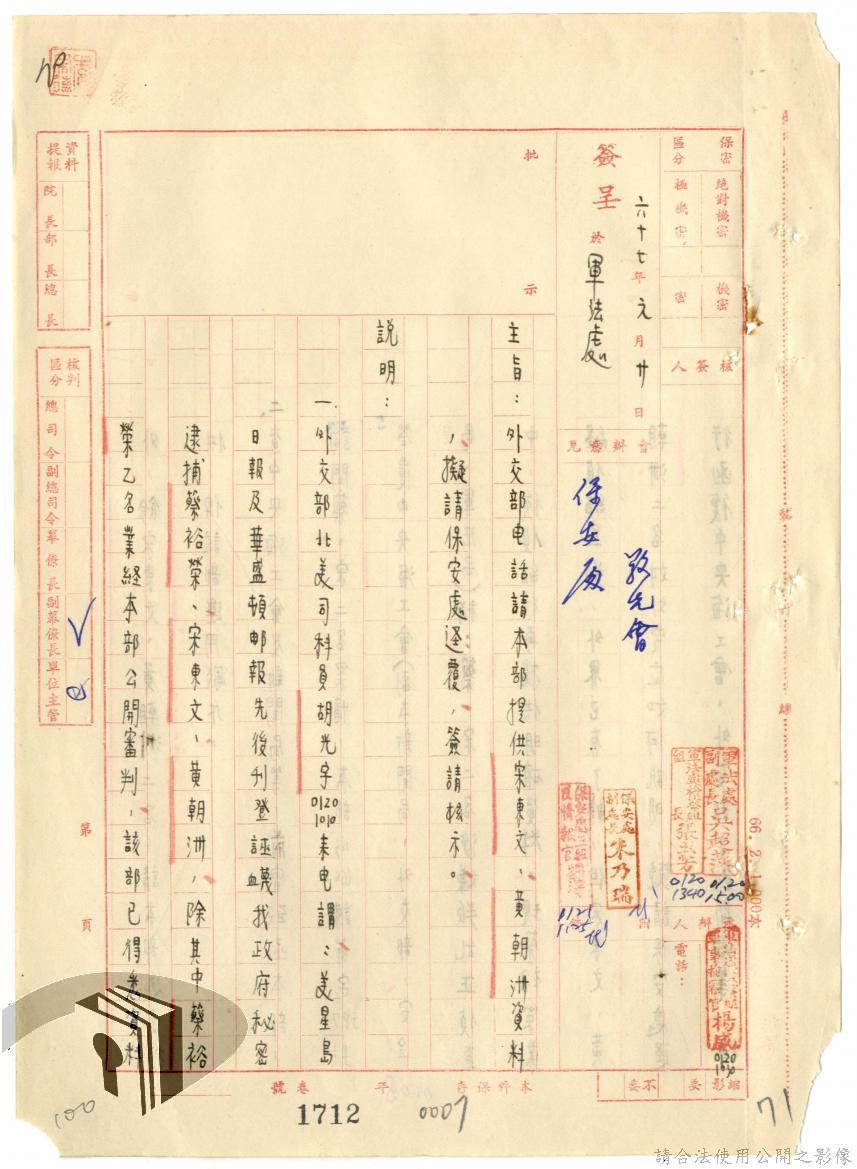 保密區分
絕對機密
極機密
機密
密
核簽人
六十七年元月廿日
簽呈 於 軍法處
會辦意見
敬先會
保安處
軍法處副處長
0120
1500
張
0120
1340
保安處副處長朱乃瑞
0121
1125
附
辦人
電話：
楊
0120
批示
主旨：外交部电話請本部提供宋東文、黃朝洲資料
，擬請保安處逕覆，簽請核示。
説明：
一、外交部北美司科員胡光宇0120 1010来电謂：美星島
日報及華盛頓邮報先後刋登誣衊我政府秘密
逮捕蔡裕荣、宋東文、黃朝洲，除其中蔡裕
荣乙名業経本部公開審判，該部已得悉資料
資料提報
院長
部長
總長
核判區分
總司令
副總司令
幕僚長
副幕僚長
單位主管
第 頁
本件保存 年 卷 號
縮影 要 不要
1712
0007
100
71
請合法使用公開之影像